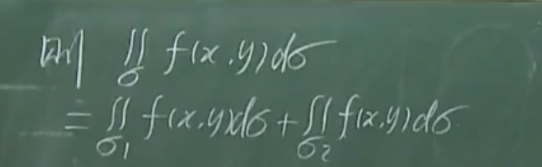 则 ∬_σ f(x,y)dσ
= ∬_σ₁ f(x,y)dσ + ∬_σ₂ f(x,y)dσ